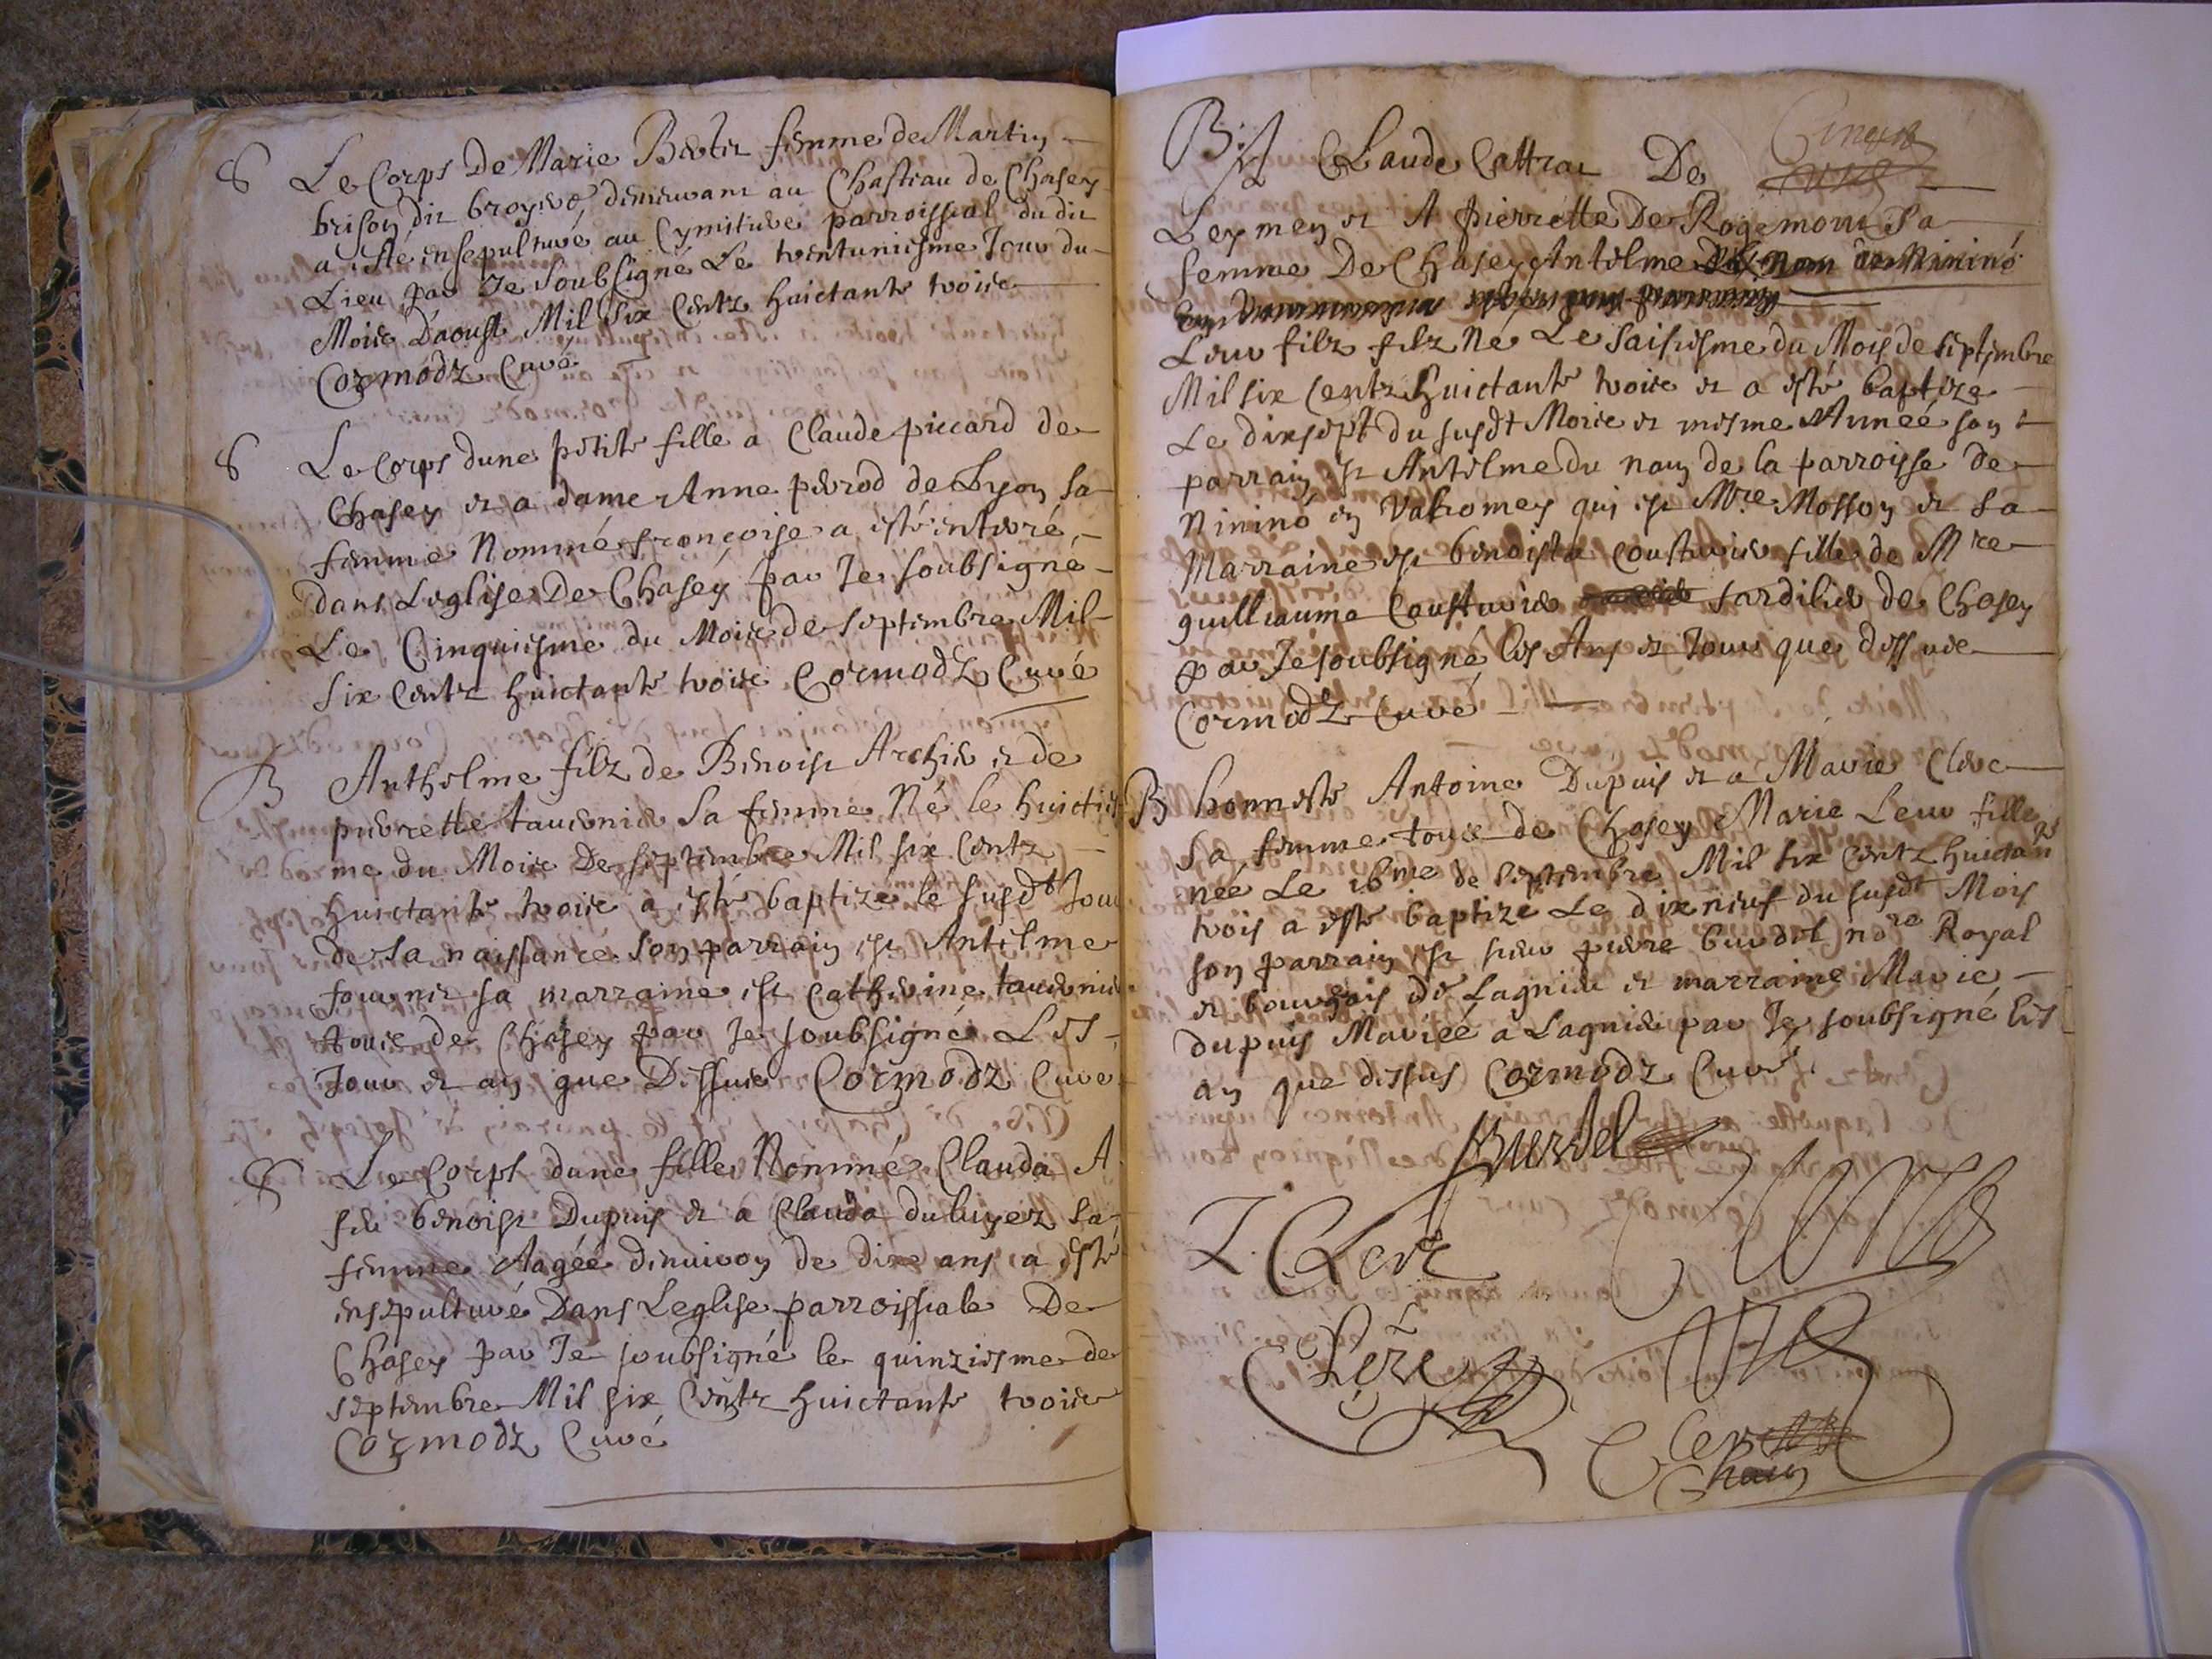 S Le Corps De Marie femme de Martin
brison dit broyere demeurant au Chasteau de Chasey
a esté ensepulturé au Cymitiere parroissial du dit
Lieu par Je soubsigné Le trentuniesme Jour du
Mois Daoust Mil six Centz huictante trois
Cormodz Curé
S Le Corps dune petite fille a Claude piccard de
Chasey et a dame Anne perod de Lyon sa
femme Nommé francoise a esté enterré
dans Leglise De Chasey par Je soubsigné
Le Cinquiesme du Mois de septembre Mil
six Centz huictante trois Cormodz Curé
B Anthelme filz de Benoist Archier et de
pierrette tavernier sa femme Né le huicties
me du Mois De septembre Mil six Centz
huictante trois a esté baptizé le susdt Jour
de sa naissance son parrain est Antelme
fournir sa marraine est Catherine tavernier
tous de Chasey par Je soubsigné Les
Jour et an que Dessus Cormodz Curé
S Le Corps dune fille Nommé Clauda A
feu benoist Dupuis et a Clauda duluyez sa
femme Aagée denviron de dix ans a esté
insepulturé Dans Leglise parroissiale De
Chasey par Je soubsigné le quinziesme de
septembre Mil six Centz huictante trois
Cormodz Curé
B A Claude Cattrat De
Leymen et A pierrette De Rogemont sa
femme De Chasey Antelme
Leur filz filz Né Le saisiesme du Mois de septembre
Mil six Centz huictante trois et a esté baptize
Le dixsept du susdt Mois et mesme Année son
parrain est Antelme du nom de la parroisse de
Nininó en Valromey qui est Mre Mosson et sa
Marraine est benoista Cousturier fille de Mre
guilliaume Cousturier sardilier de Chasey
par Je soubsigné les Ans et Jour que dessus
Cormodz Curé
B honneste Antoine Dupuis et a Marie Clerc
sa femme tous de Chasey Marie Leur fille
née Le 16me de septembre Mil six Centz huictante
trois a esté baptizé Le dixneuf du susdt Mois
son parrain est sieur pierre burdel nore Royal
et bourgois de Lagnieu et marraine Marie
dupuis Mariée a Lagnieu par Je soubsigné les
an que dessus Cormodz Curé
Burdel
Clerc
Clerc